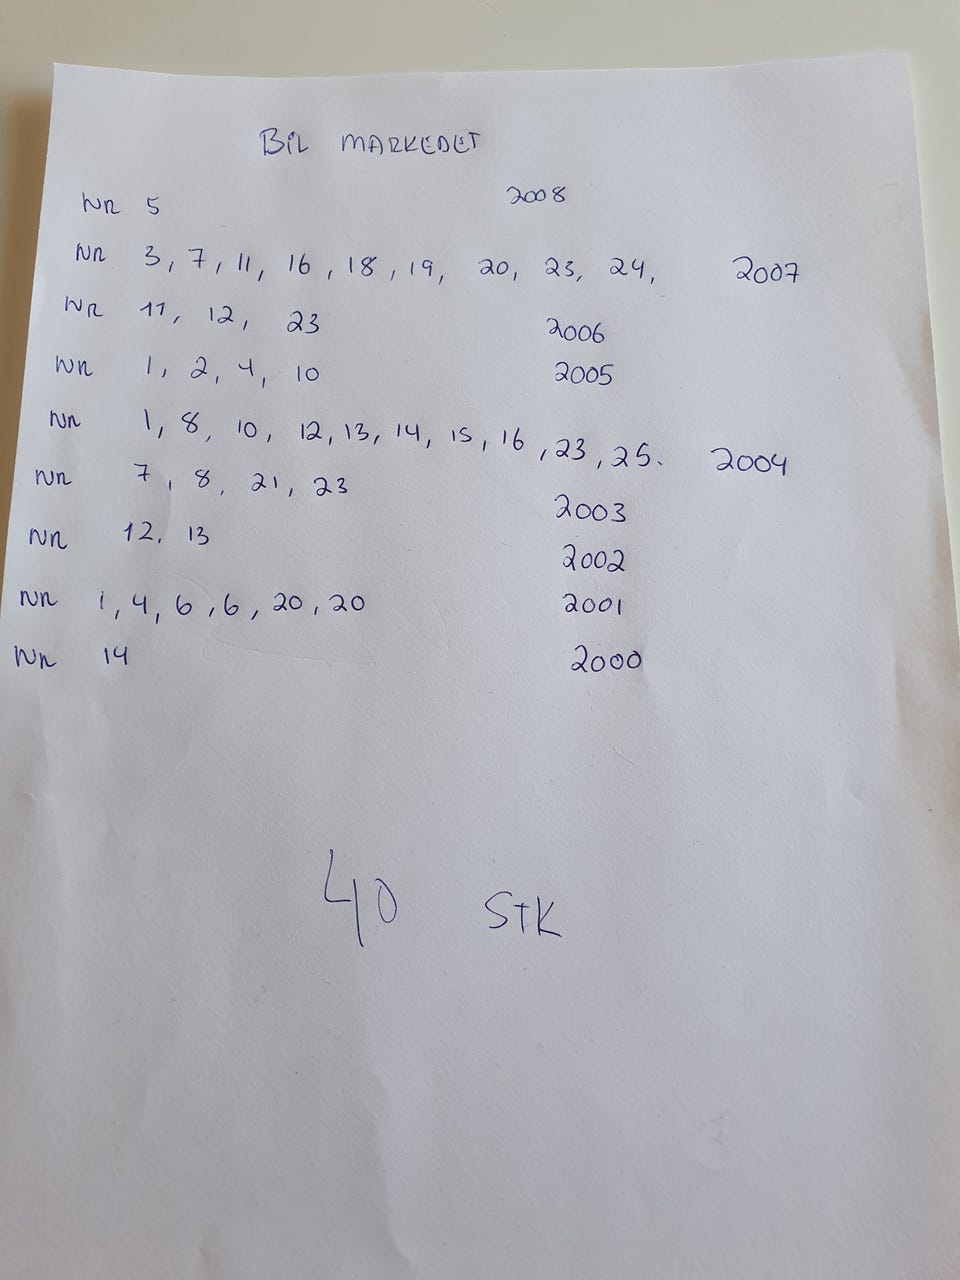 BIL MARKEDET
NR 5 2008
NR 3, 7, 11, 16, 18, 19, 20, 23, 24, 2007
NR 11, 12, 23 2006
NR 1, 2, 4, 10 2005
NR 1, 8, 10, 12, 13, 14, 15, 16, 23, 25. 2004
NR 7, 8, 21, 23 2003
NR 12, 13 2002
NR 1, 4, 6, 6, 20, 20 2001
NR 14 2000
40 STK